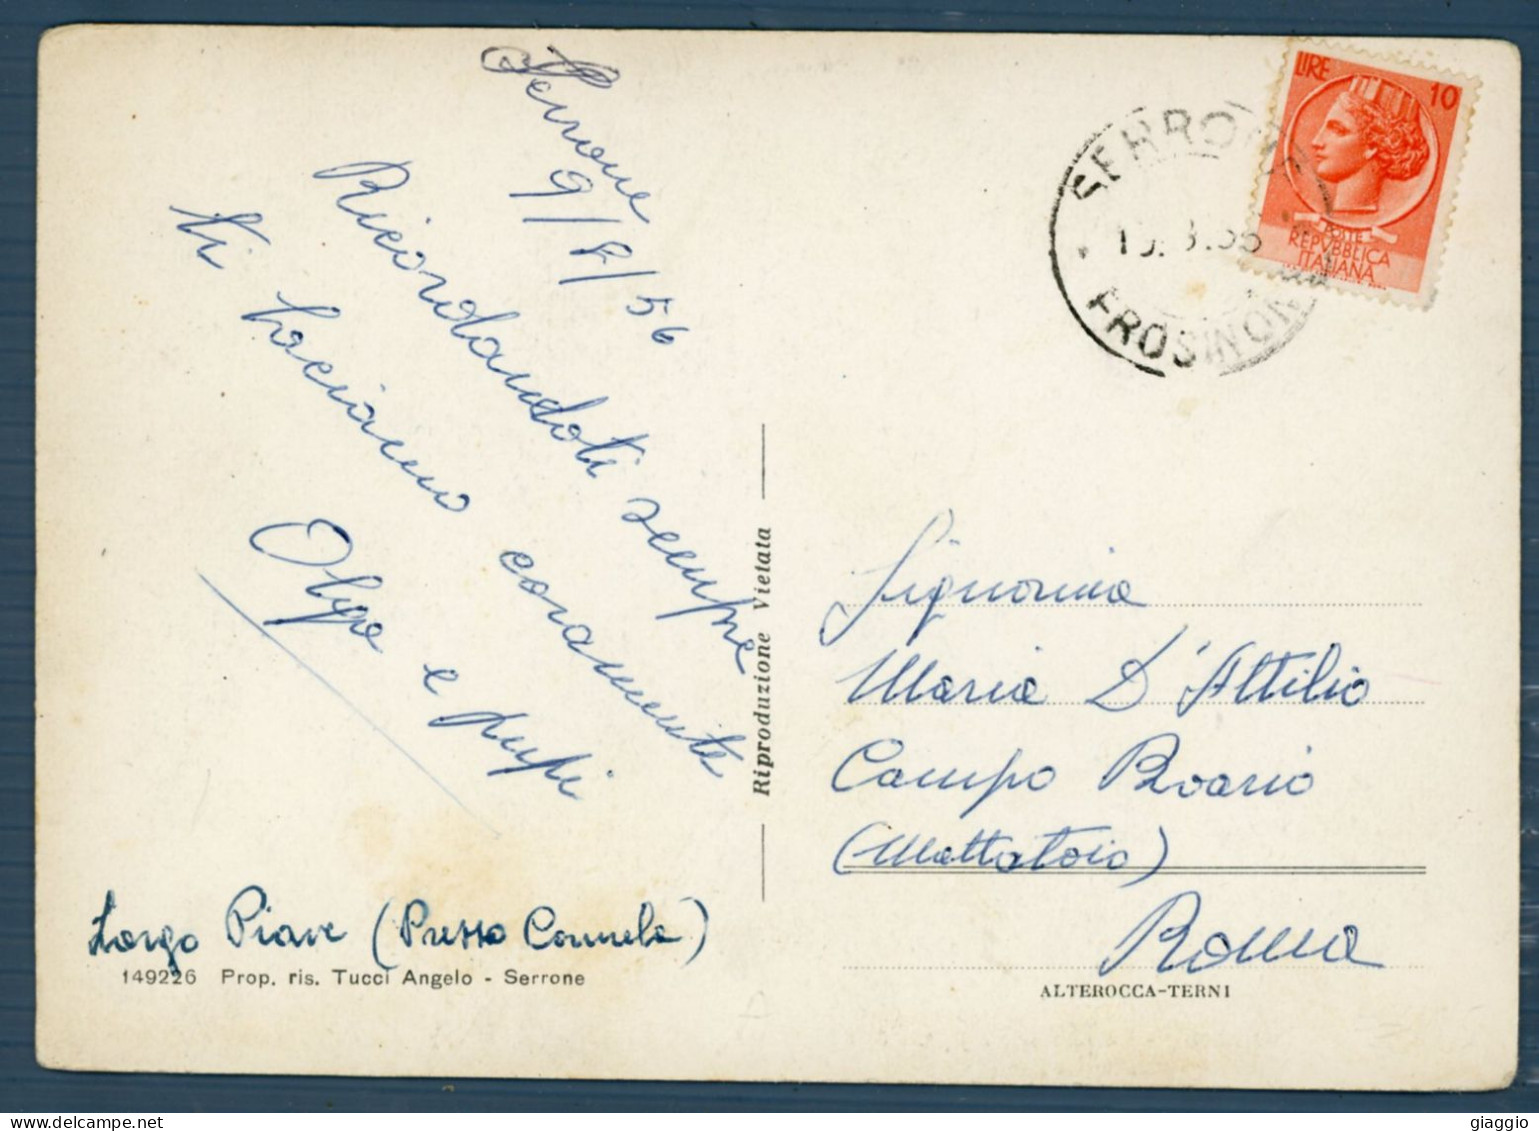 Serrone
9/8/56
Ricordandoti sempre
ti baciamo caramente
Olga e Pupi
Largo Piave (Presso Carmela)
149226 Prop. ris. Tucci Angelo - Serrone
Riproduzione Vietata
SERRONE
FROSINON
LIRE 10
POSTE
REPVBBLICA
ITALIANA
Signorina
Maria D'Attilio
Campo Boario
(Mattatoio)
Roma
ALTEROCCA-TERNI
giaggio